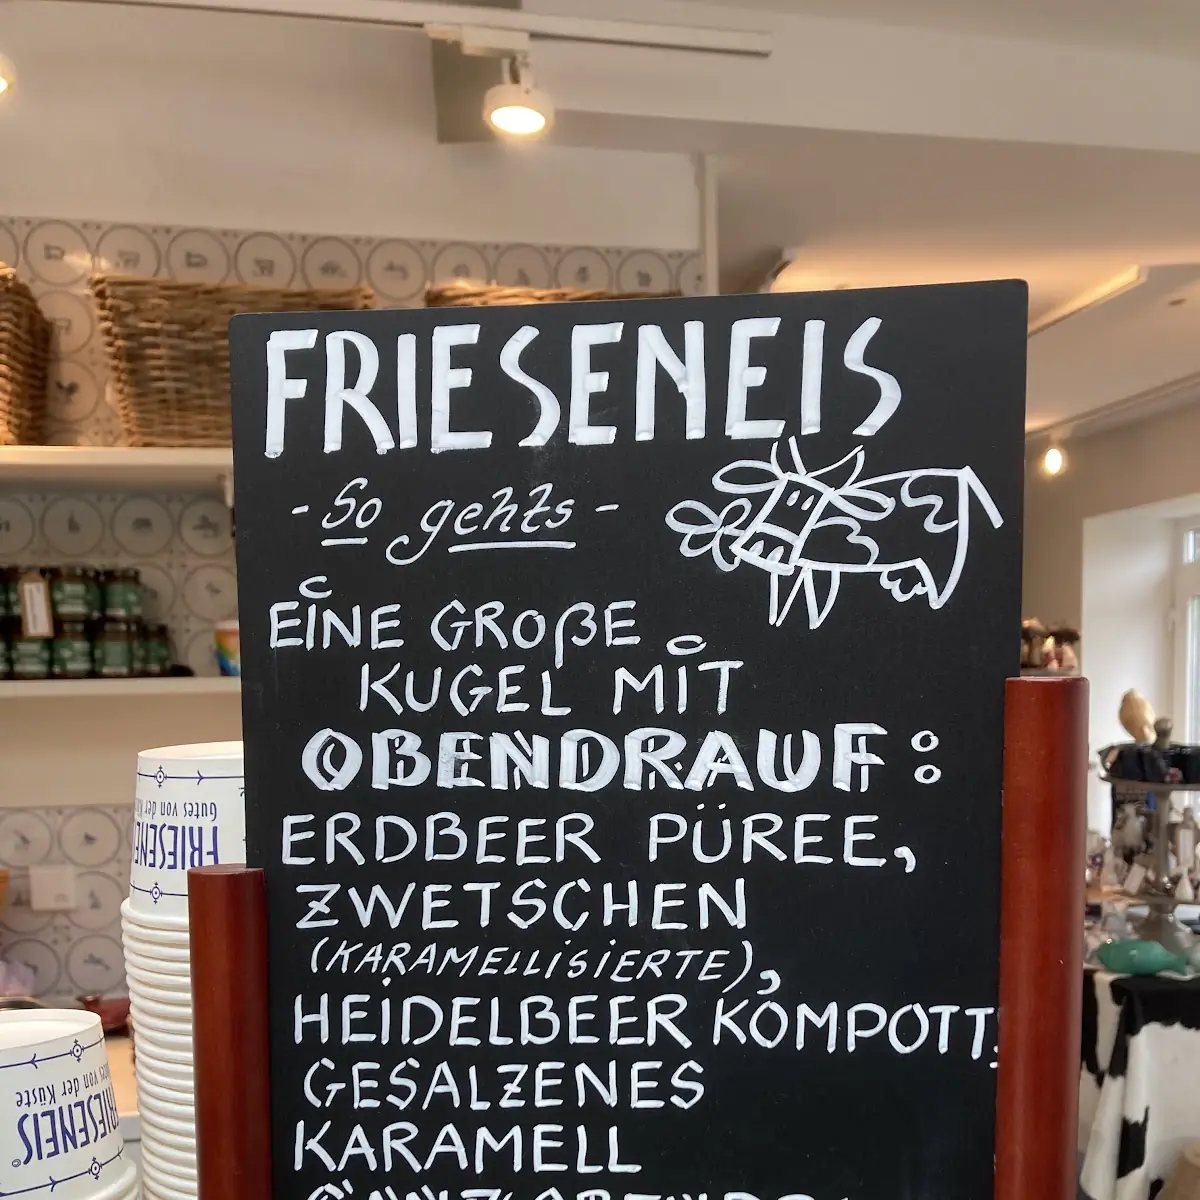 FRIESENEIS
- So gehts -
EINE GROßE
KUGEL MIT
OBENDRAUF:
ERDBEER PÜREE,
ZWETSCHEN
(KARAMELLISIERTE),
HEIDELBEER KOMPOTT,
GESALZENES
KARAMELL
FRIESENE
Gutes von der Kü
FRIESENEIS
Gutes von der Küste